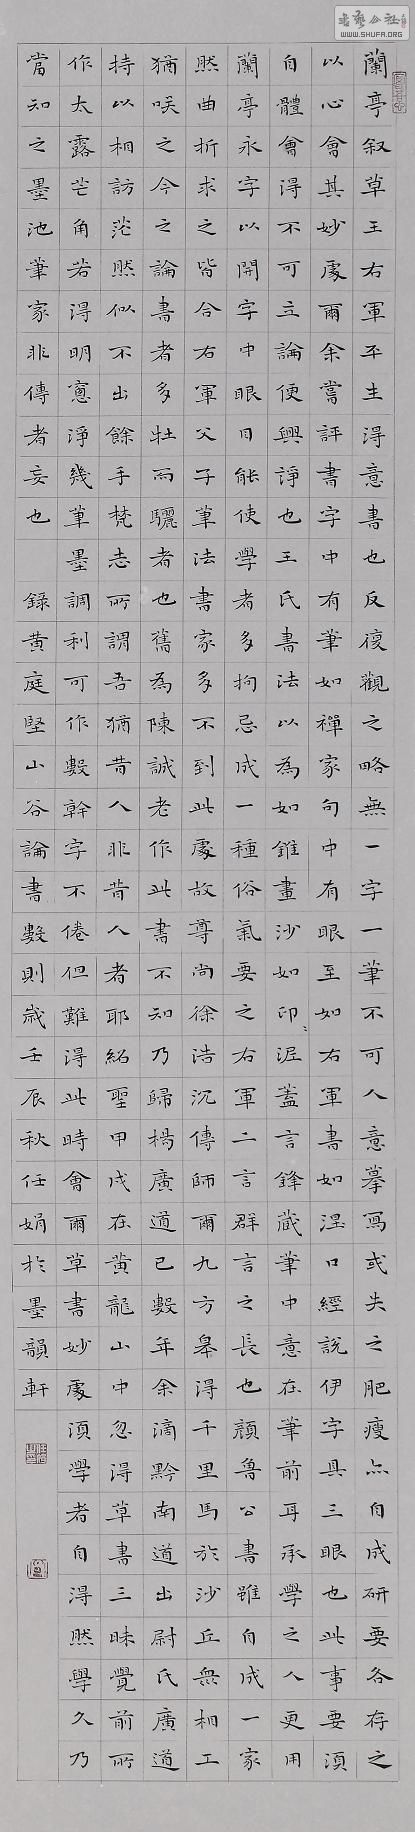 蘭亭叙草王右軍平生得意書也反復觀之略無一字一筆不可人意摹寫或失之肥瘦亦自成研要各存之
以心會其妙處爾余嘗評書字中有筆如禪家句中有眼至如右軍書如涅口經說伊字具三眼也此事要須
自體會得不可立論便興諍也王氏書法以為如錐畫沙如印泥蓋言鋒藏筆中意在筆前耳承學之人更用
蘭亭永字以開字中眼目能使學者多拘忌成一種俗氣要之右軍二言群言之長也顏魯公書雖自成一家
然曲折求之皆合右軍父子筆法書家多不到此處故尊尚徐浩沉傳師爾九方皋得千里馬於沙丘無相工
猶咲之今之論書者多牡而驪者也舊為陳誠老作此書不知乃歸楊廣道已數年余謫黔南道出尉氏廣道
持以相訪茫然似不出餘手梵志所謂吾猶昔人非昔人者耶紹聖甲戌在黄龍山中忽得草書三昧覺前所
作太露芒角若得明窻淨幾筆墨調利可作數幹字不倦但難得此時會爾草書妙處須學者自得然學久乃
當知之墨池筆冢非傳者妄也 錄黄庭堅山谷論書數則歲壬辰秋任娟於墨韻軒
書法公社
WWW.SHUFA.ORG